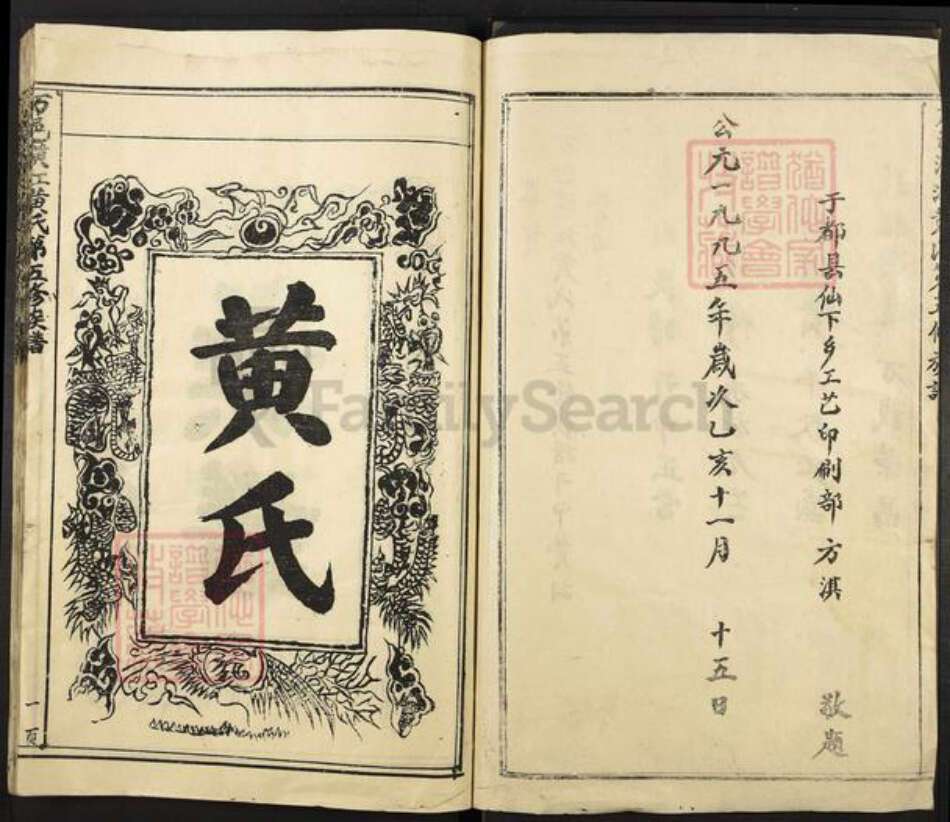 于都县仙下乡工艺印刷部 方淇 敬题
公元一九九五年歲次乙亥十一月 十五日
黄氏
黄氏第五修族譜
一頁
FamilySearch